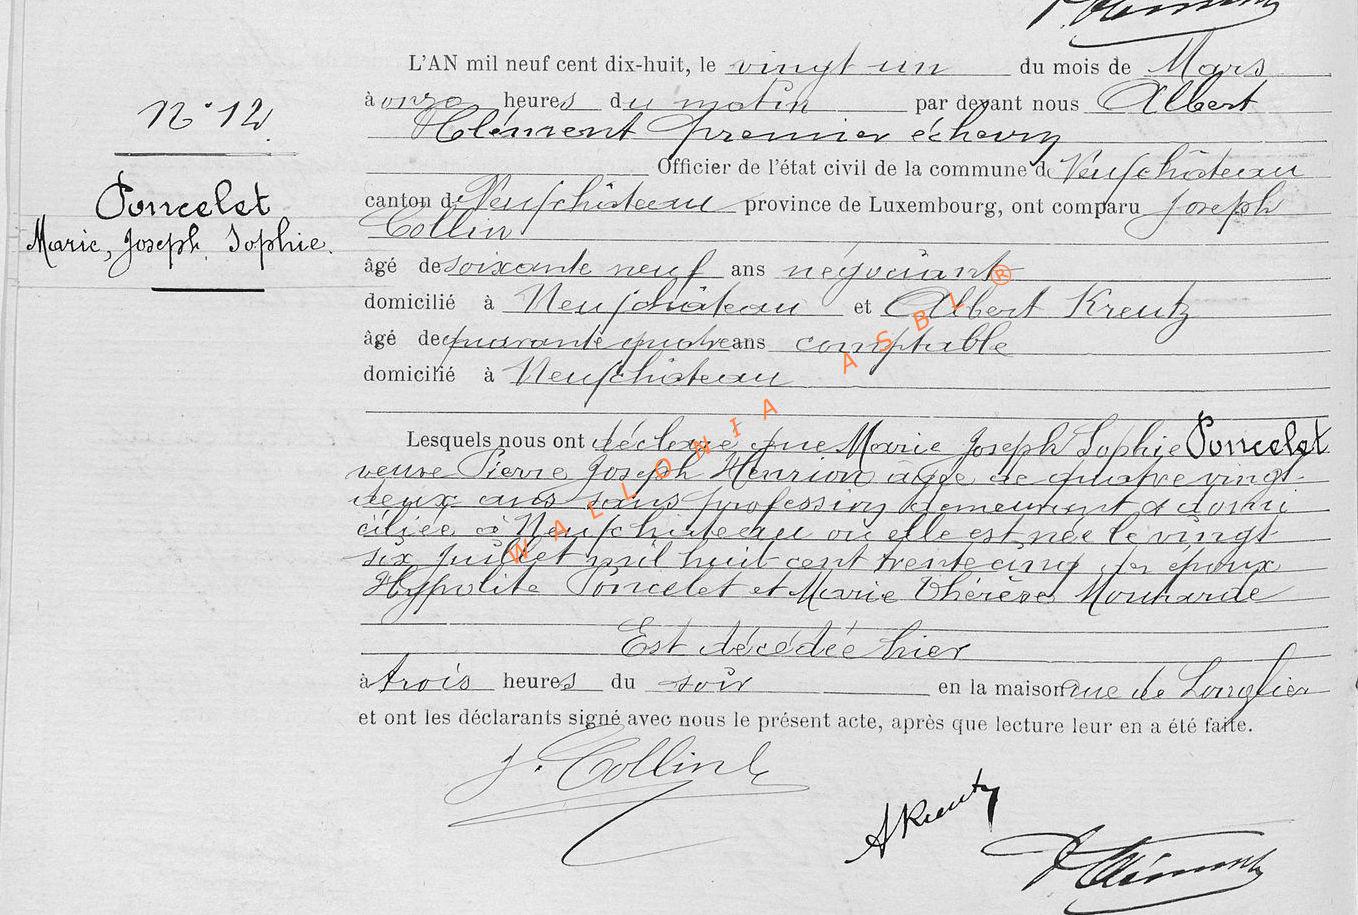 L'AN mil neuf cent dix-huit, le vingt un du mois de Mars
à onze heures du matin par devant nous Albert
Clément premier échevin
N° 12
Officier de l'état civil de la commune de Neufchâteau
Poncelet
canton de Neufchâteau province de Luxembourg, ont comparu Joseph
Collin
Marie, Joseph Sophie.
âgé de soixante neuf ans négociant
domicilié à Neufchâteau et Albert Kreutz
âgé de quarante quatre ans comptable
domicilié à Neufchâteau
WALLONIA ASBL ®
Lesquels nous ont déclaré que Marie Joseph Sophie Poncelet
veuve Pierre Joseph Henrion âgée de quatre vingt
deux ans sans profession demeurant & domi
ciliée à Neufchâteau où elle est née le vingt
six juillet mil huit cent trente cinq époux
Hypolite Poncelet et Marie Thérèse
Est décédée hier
à trois heures du soir en la maison rue de Longlier
et ont les déclarants signé avec nous le présent acte, après que lecture leur en a été faite.
J. Collin
A Kreutz
A Clément